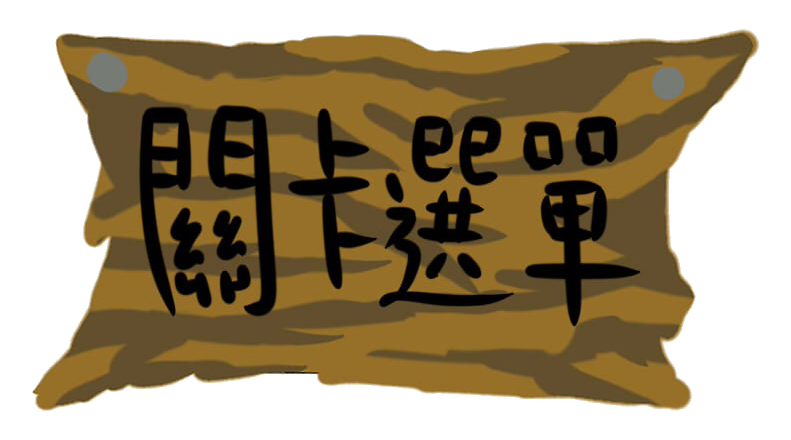 關卡選單